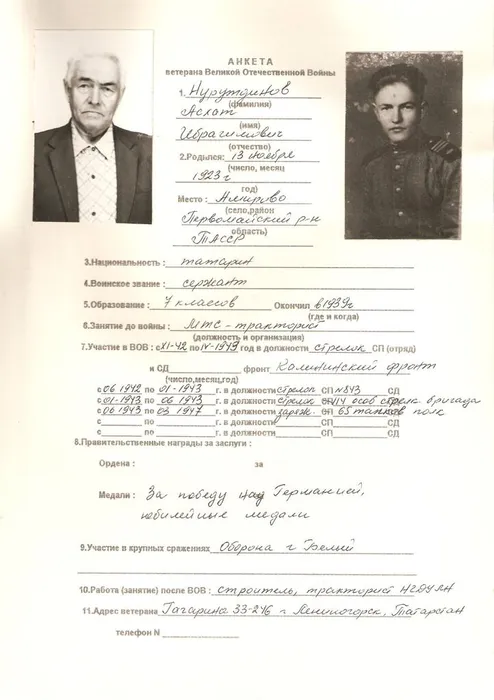 АНКЕТА
ветерана Великой Отечественной Войны
1. Нурутдинов
(фамилия)
Асхат
(имя)
Ибрагимович
(отчество)
2.Родился: 13 ноября
(число, месяц
1923 г
год)
Место: Амирово
(село,район
Первомайский р-н
область)
ТАССР
3.Национальность : татарин
4.Воинское звание : сержант
5.Образование : 7 классов Окончил в 1939г
(где и когда)
6.Занятие до войны : МТС - тракторист
(должность и организация)
7.Участие в ВОВ : с XI-42 по IV-1943 год в должности стрелок СП (отряд)
и СД фронт Калининский фронт
(число,месяц,год)
с 06 1942 по 01-1943 г. в должности стрелок СП №843 СД
с 01-1943 по 06 1943 г. в должности стрелок СП 114 особ стрелк бригада
с 06 1943 по 03 1947 г. в должности заряж. СП 65 танков полк
с по г. в должности СП СД
с по г. в должности СП СД
8.Правительственные награды за заслуги :
Ордена : за
Медали : За победу над Германией,
юбилейные медали
9.Участие в крупных сражениях Оборона г Белый
10.Работа (занятие) после ВОВ : строитель, тракторист НГДУ ЛН
11.Адрес ветерана Гагарина 33-246 г Лениногорск, Татарстан
телефон N